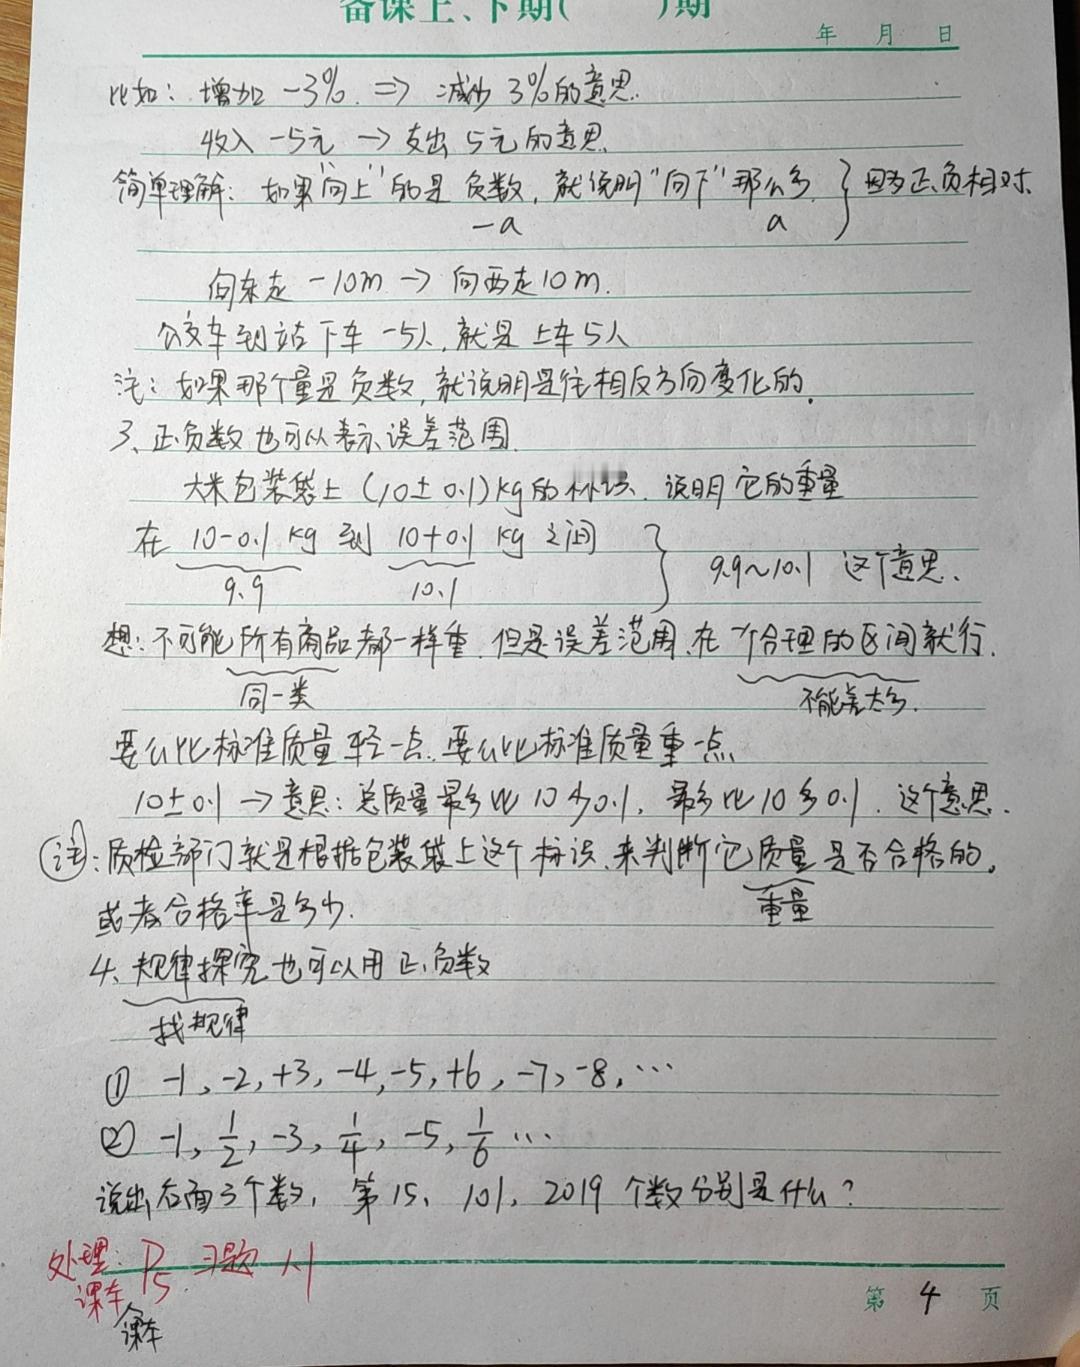 备课上、下期(    )期
年 月 日
比如: 增加 -3% ⇒ 减少 3%的意思.
收入 -5元 → 支出 5元的意思.
简单理解: 如果"向上"的是负数, 就说明"向下"那么多. } 因为正负相对.
-a a
向东走 -10m → 向西走10m.
公交车到站下车 -5人, 就是上车5人
注: 如果那个量是负数, 就说明是往相反方向变化的.
3、正负数也可以表示误差范围.
大米包装袋上 (10±0.1)kg的标识. 说明它的重量
在 10-0.1 kg 到 10+0.1 kg 之间
9.9 10.1 } 9.9~10.1 这个意思.
想: 不可能所有商品都一样重. 但是误差范围. 在一个合理的区间就行.
同一类 不能差太多.
要么比标准质量轻一点. 要么比标准质量重一点.
10±0.1 → 意思: 总质量最多比10少0.1, 最多比10多0.1. 这个意思.
注: 质检部门就是根据包装袋上这个标识. 来判断它质量是否合格的.
重量
或者合格率是多少.
4、规律探究也可以用正、负数
找规律
① -1, -2, +3, -4, -5, +6, -7, -8, …
② -1, 1/2, -3, 1/4, -5, 1/6 …
说出后面3个数, 第15、101、2019个数分别是什么?
处理: P5 习题 1.1
课本
课本
第 4 页